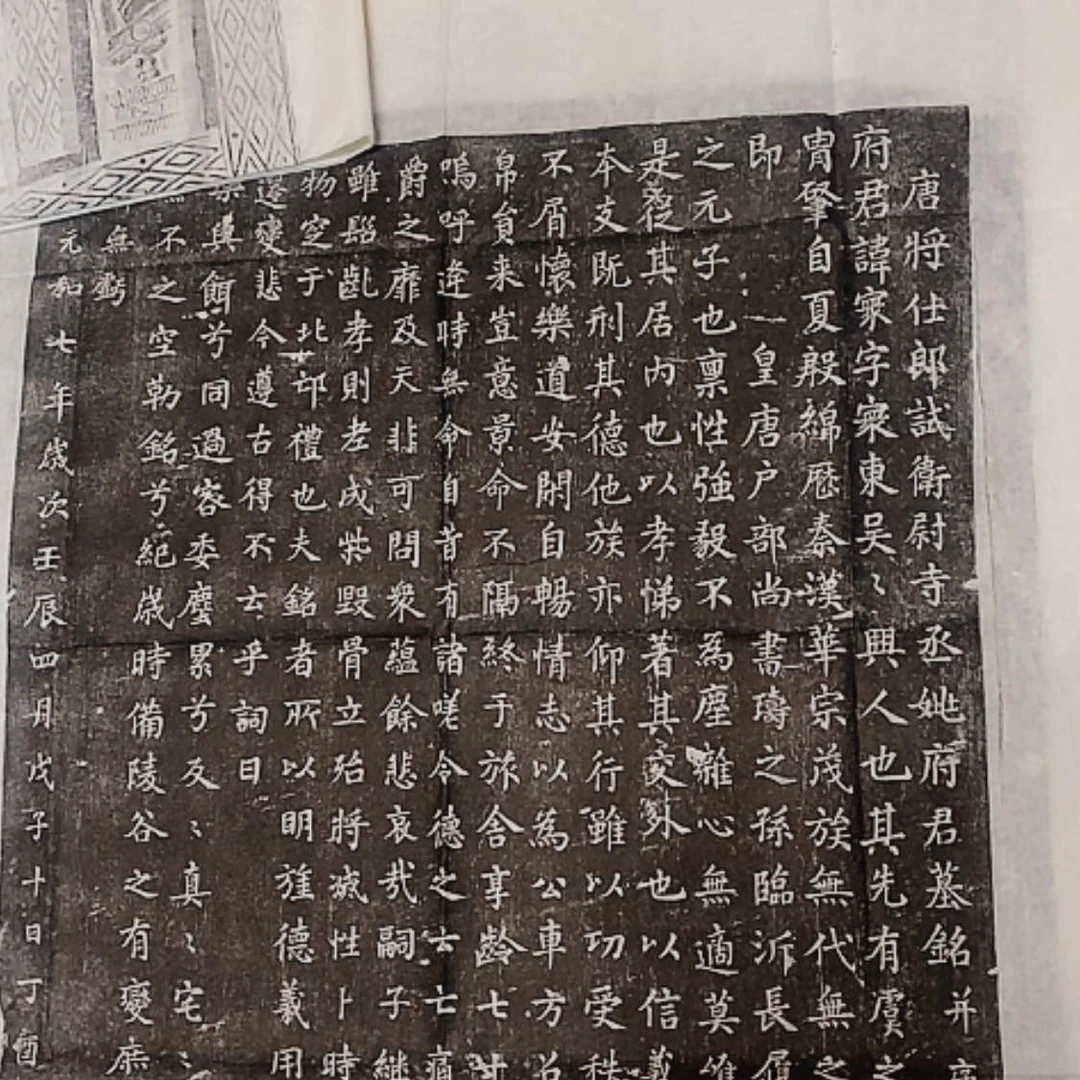 唐將仕郎試衛尉寺丞姚府君墓銘并序
府君諱寀字寀東吴〻興人也其先有虞之
胄肇自夏殷綿歷秦漢華宗茂族無代無之
即皇唐户部尚書璹之孫臨沂長
之元子也禀性強毅不為塵雜心無適莫
是從其居内也以孝悌著其交外也以信義
本支既刑其德他族亦仰其行雖以功受秩
不屑懷樂道安閑自暢情志以為公車方召
帛賁来豈意景命不隔終于旅舍享齡七十
嗚呼逢時無命自昔有諸嗟令德之云亡痛
爵之靡及天非可問衆蘊餘悲哀哉嗣子継
雖髫齓孝則老成柴毀骨立殆將滅性卜時
物窆于北邙禮也夫銘者所以明旌德義用
變悲今遵古得不云乎詞曰
與餌兮同過客委塵累兮反〻真〻宅〻
不之空勒銘兮紀歲時備陵谷之有變庶
無虧
元和七年歲次壬辰四月戊子十日丁酉